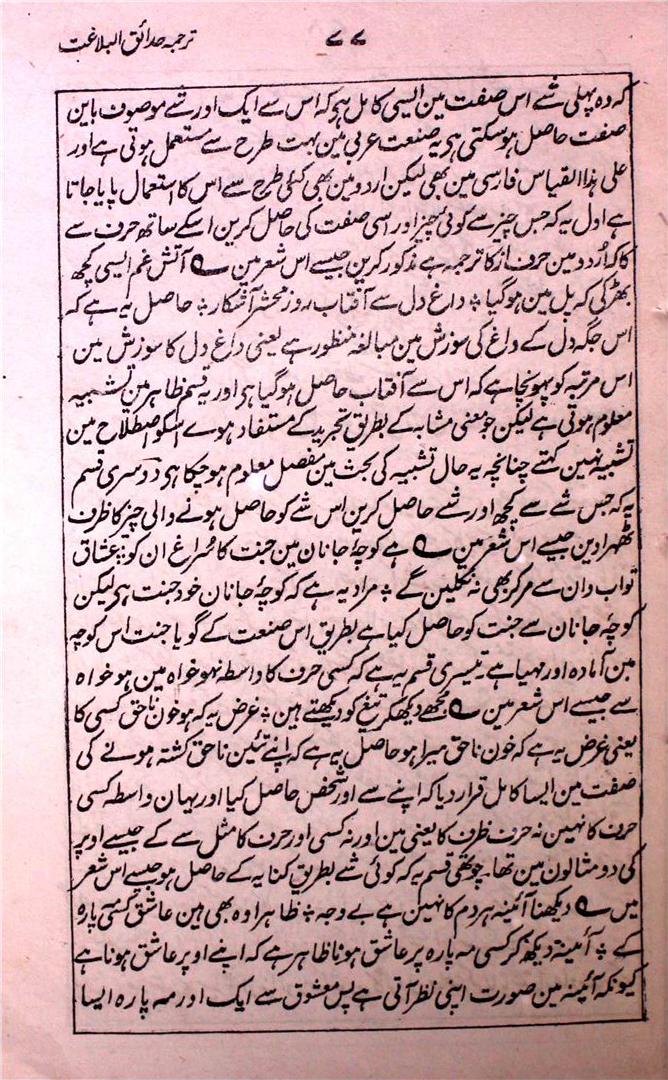 ترجمہ حدائق البلاغت
۷۷
کہ وہ پہلی شے اس صفت مین ایسی کامل ہی کہ اس سے ایک اور شے موصوف باین
صفت حاصل ہو سکتی ہی یہ صنعت عربی مین بہت طرح سے مستعمل ہوتی ہے اور
علی ہذا القیاس فارسی مین بھی لیکن اردو مین بھی کئی طرح سے اس کا استعمال پایا جاتا
ہے اول یہ کہ جس چیز سے کوئی چیز اور اسی صفت کی حاصل کرین اسکے ساتھ حرف سے
کا کہ اُردو مین حرف از کا ترجمہ ہے مذکور کرین جیسے اس شعر مین ؎ آتش غم ایسی کچھ
بھڑکی کہ پل مین ہو گیا ؞ داغ دل سے آفتاب روز محشر آشکار ؞ حاصل یہ ہے کہ
اس جگہ دل کے داغ کی سوزش مین مبالغہ منظور ہے یعنی داغ دل کا سوزش مین
اس مرتبہ کو پہونچا ہے کہ اس سے آفتاب حاصل ہو گیا ہی اور یہ قسم ظاہر مین تشبیہ
معلوم ہوتی ہے لیکن جو معنی مشابہ کے بطریق تجرید کے مستفاد ہوے اسکو اصطلاح مین
تشبیہ نہین کہتے چنانچہ یہ حال تشبیہ کی بحث مین مفصل معلوم ہو چکا ہی دوسری قسم
یہ کہ جس شے سے کچھ اور شے حاصل کرین اس شے کو حاصل ہونے والی چیز کا ظرف
ٹھہرا دین جیسے اس شعر مین ؎ ہے کوچۂ جانان مین جنت کا سُراغ ان کو ؞ عشاق
تو اب وان سے مر کر بھی نہ نکلین گے ؞ مراد یہ ہے کہ کوچۂ جانان خود جنت ہی لیکن
کوچۂ جانان سے جنت کو حاصل کیا ہے بطریق اس صنعت کے گویا جنت اس کوچہ
مین آمادہ اور مہیا ہے تیسری قسم یہ ہے کہ کسی حرف کا واسطہ نہو خواہ مین ہو خواہ
سے جیسے اس شعر مین ؎ مجھے دیکھکر تیغ کو دیکھتے ہین ؞ غرض یہ کہ ہو خون ناحق کسی کا
یعنی غرض یہ ہے کہ خون ناحق میرا ہو حاصل یہ ہے کہ اپنے تئین ناحق کشتہ ہونے کی
صفت مین ایسا کامل قرار دیا کہ اپنے سے اور شخص حاصل کیا اور یہان واسطہ کسی
حرف کا نہین نہ حرف ظرف کا یعنی مین اور نہ کسی اور حرف کا مثل سے کے جیسے اوپر
کی دو مثالون مین تھا۔ چوتھی قسم یہ کہ کوئی شے بطریق کنایہ کے حاصل ہو جیسے اس شعر
میں ؎ دیکھنا آئینہ ہر دم کا نہین ہے بے وجہ ؞ ظاہرا وہ بھی ہین عاشق کسی مہ پارہ
کے ؞ آئینہ دیکھ کر کسی مہ پارہ پر عاشق ہونا ظاہر ہے کہ اپنے اوپر عاشق ہونا ہے
کیونکہ آئینہ مین صورت اپنی نظر آتی ہے پس معشوق سے ایک اور مہ پارہ ایسا